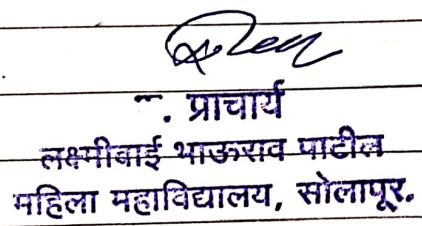 . प्राचार्य
लक्ष्मीबाई भाऊराव पाटील
महिला महाविद्यालय, सोलापूर.